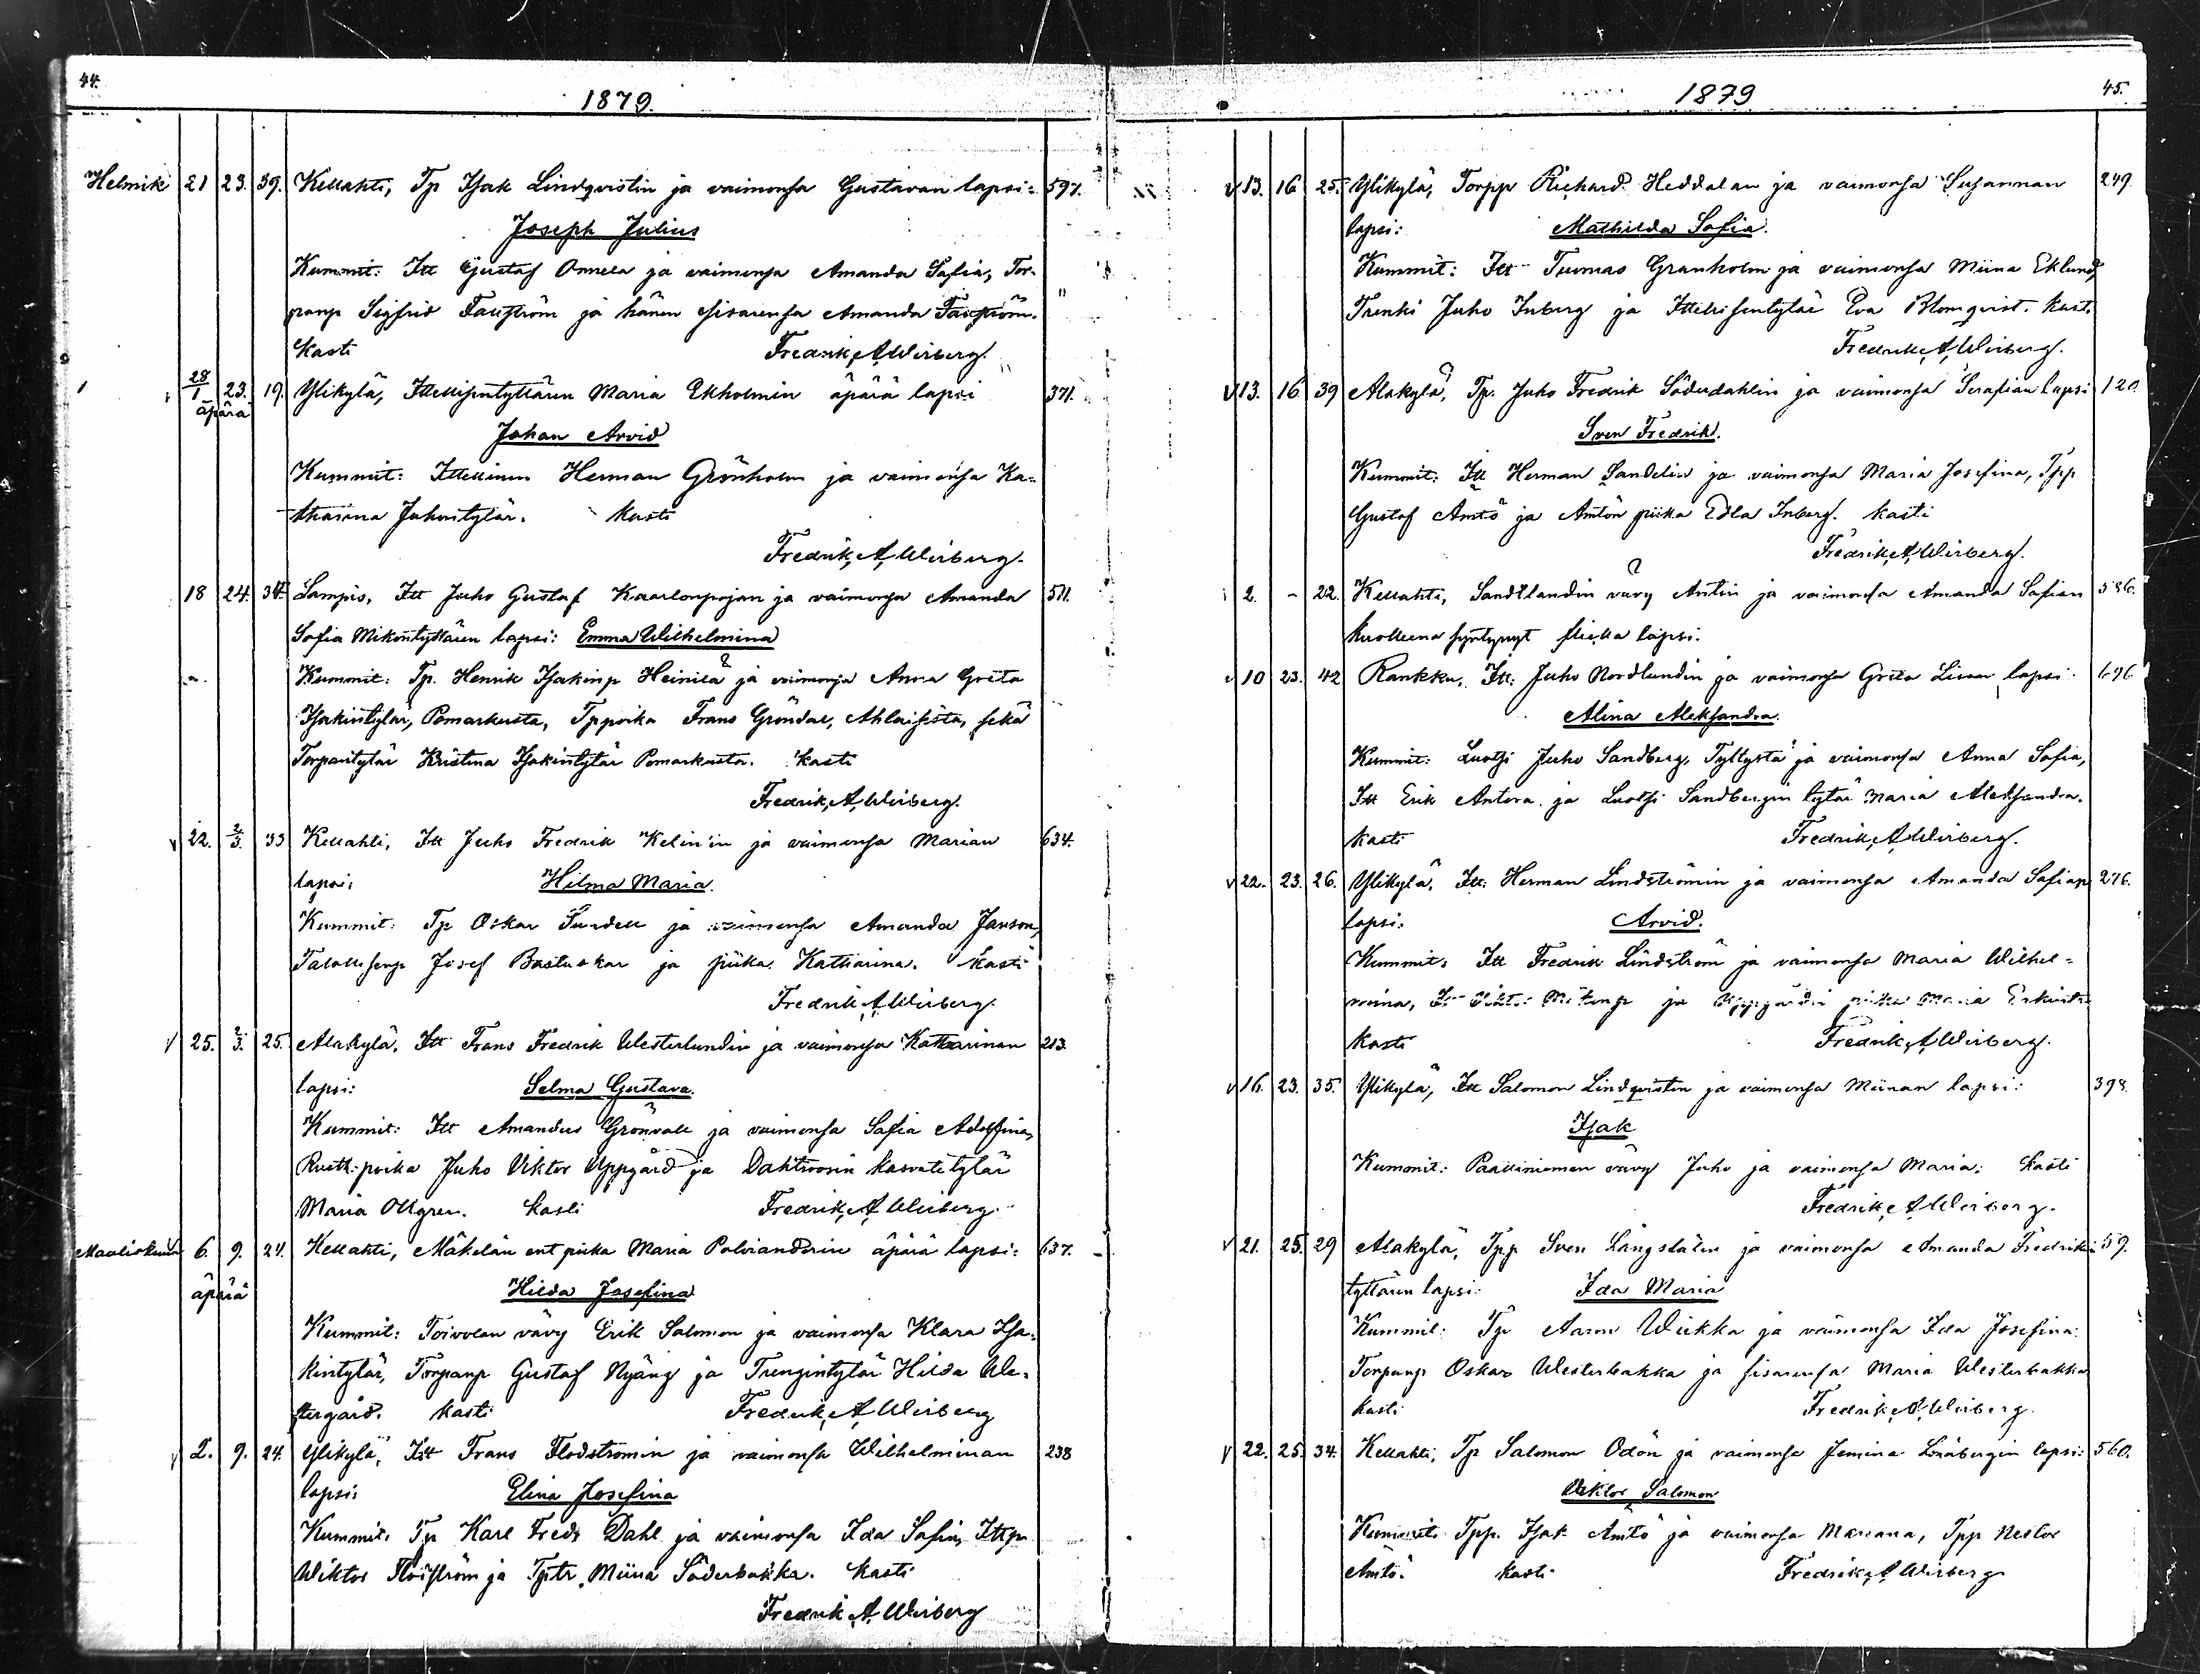 44.
1879.
Helmik 21 23. 39. Kellahti, Tp Isak Lindqvistin ja vaimonsa Gustavan lapsi: 597.
Joseph Julius
Kummit: Itt Gustaf Onnela ja vaimonsa Amanda Sofia, Tor-
panp Sigfrid Fauström ja hänen sisarensa Amanda Fauström.
Kasti Fredrik A. Wirberg.
28/1 23. 19. Ylikylä, Itellisentyttären Maria Ekholmin äpärä lapsi 371.
äpärä
Johan Arvid
Kummit: Itellinen Herman Grönholm ja vaimonsa Ka-
tharina Juhontytär. Kasti
Fredrik A. Wirberg.
18 24. 34. Lampis, Itt Juho Gustaf Kaarlonpojan ja vaimonsa Amanda 511.
Sofia Mikontyttären lapsi: Emma Wilhelmina
Kummit: Tp. Henrik Isakinp Heinilä ja vaimonsa Anna Greta
Isakintytär, Pomarkusta, Tppoika Frans Gröndal, Ahlaisista, sekä
Torparitytär Kristina Isakintytär Pomarkusta. Kasti
Fredrik A. Wirberg.
v 22. 2/3. 33 Kellahti, Itt Juho Fredrik Kelin'in ja vaimonsa Marian 634.
lapsi: Hilma Maria.
Kummit: Tp Oskar Sundell ja vaimonsa Amanda Janson,
Talollisenp Josef Bastuskar ja piika Katharina. Kasti
Fredrik A. Wirberg.
v 25. 2/3. 25. Alakylä, Itt Frans Fredrik Westerlundin ja vaimonsa Katharinan 213.
lapsi: Selma Gustava.
Kummit: Itt Amandus Grönvall ja vaimonsa Sofia Adolfina,
Rustt. poika Juho Viktor Uppgård ja Dahlroosin kasvatetytär
Maria Ollgren. Kasti Fredrik A. Wirberg.
Maaliskuu 6. 9. 24. Kellahti, Mäkelän ent piika Maria Polvianderin äpärä lapsi: 637.
äpärä
Hilda Josefina
Kummit: Toivolan vävy Erik Salomon ja vaimonsa Klara Isa-
kintytär, Torpanp Gustaf Nyäng ja Trengintytär Hilda We-
stergård. Kasti Fredrik A. Wirberg
v 2. 9. 24. Ylikylä, Itt Frans Flodströmin ja vaimonsa Wilhelminan 238
lapsi: Elina Josefina
Kummit. Tp Karl Fredr Dahl ja vaimonsa Ida Sofia, Ittp
Wiktor Flodström ja Tptr. Miina Söderbakka. Kasti
Fredrik A. Wirberg
1879
45.
v 13. 16 25. Ylikylä, Torpp Richard Heddalan ja vaimonsa Susannan 249.
lapsi: Mathilda Sofia.
Kummit: Itt Tuomas Granholm ja vaimonsa Miina Eklund,
Trenki Juho Inberg ja Itellisentytär Eva Blomqvist. Kast.
Fredrik A. Wirberg.
v 13. 16 39 Alakylä, Tp. Juho Fredrik Söderdahlin ja vaimonsa Serafian lapsi 120.
Sven Fredrik.
Kummit: Itt Herman Sandelin ja vaimonsa Maria Josefina, Tpp
Gustaf Amtö ja Amtön piika Edla Inberg. Kasti
Fredrik A. Wirberg.
2. - 22. Kellahti, Sandslandin vävy Antin ja vaimonsa Amanda Sofian 586.
kuolleena syntynyt lapsi.
v 10 23. 42 Rankku, Itt. Juho Nordlundin ja vaimonsa Greta Lisan lapsi 696
Alina Aleksandra.
Kummit: Luotsi Juho Sandberg, Tyltystä ja vaimonsa Anna Sofia,
Itt Erik Antora ja Luotsi Sandbergin tytär Maria Aleksandra.
Kasti Fredrik A. Wirberg.
v 22. 23. 26. Ylikylä, Itt. Herman Lindströmin ja vaimonsa Amanda Sofian 276.
lapsi: Arvid.
Kummit. Itt Fredrik Lindström ja vaimonsa Maria Wilhel-
mina, ja piika Maria
Kasti Fredrik A. Wirberg.
v 16. 23. 35. Ylikylä, Itt Salomon Lindqvistin ja vaimonsa Miinan lapsi: 398.
Isak
Kummit: Paatiniemen vävy Juho ja vaimonsa Maria. Kasti
Fredrik A. Wirberg.
v 21. 25. 29 Alakylä, Tpp Sven Långstälin ja vaimonsa Amanda Fredrikin 59.
tyttären lapsi: Ida Maria
Kummit: Tp Aaron Wiikka ja vaimonsa Ida Josefina.
Torpanp Oskar Westerbakka ja sisarensa Maria Westerbakka
Kasti Fredrik A. Wirberg.
v 22. 25. 34. Kellahti, Tp Salomon Odön ja vaimonsa Jemina Lönbergin lapsi: 560.
Viktor Salomon
Kummit Tpp. Isak Amtö ja vaimonsa Mariana, Tpp Nestor
Amtö. Kasti Fredrik A. Wirberg